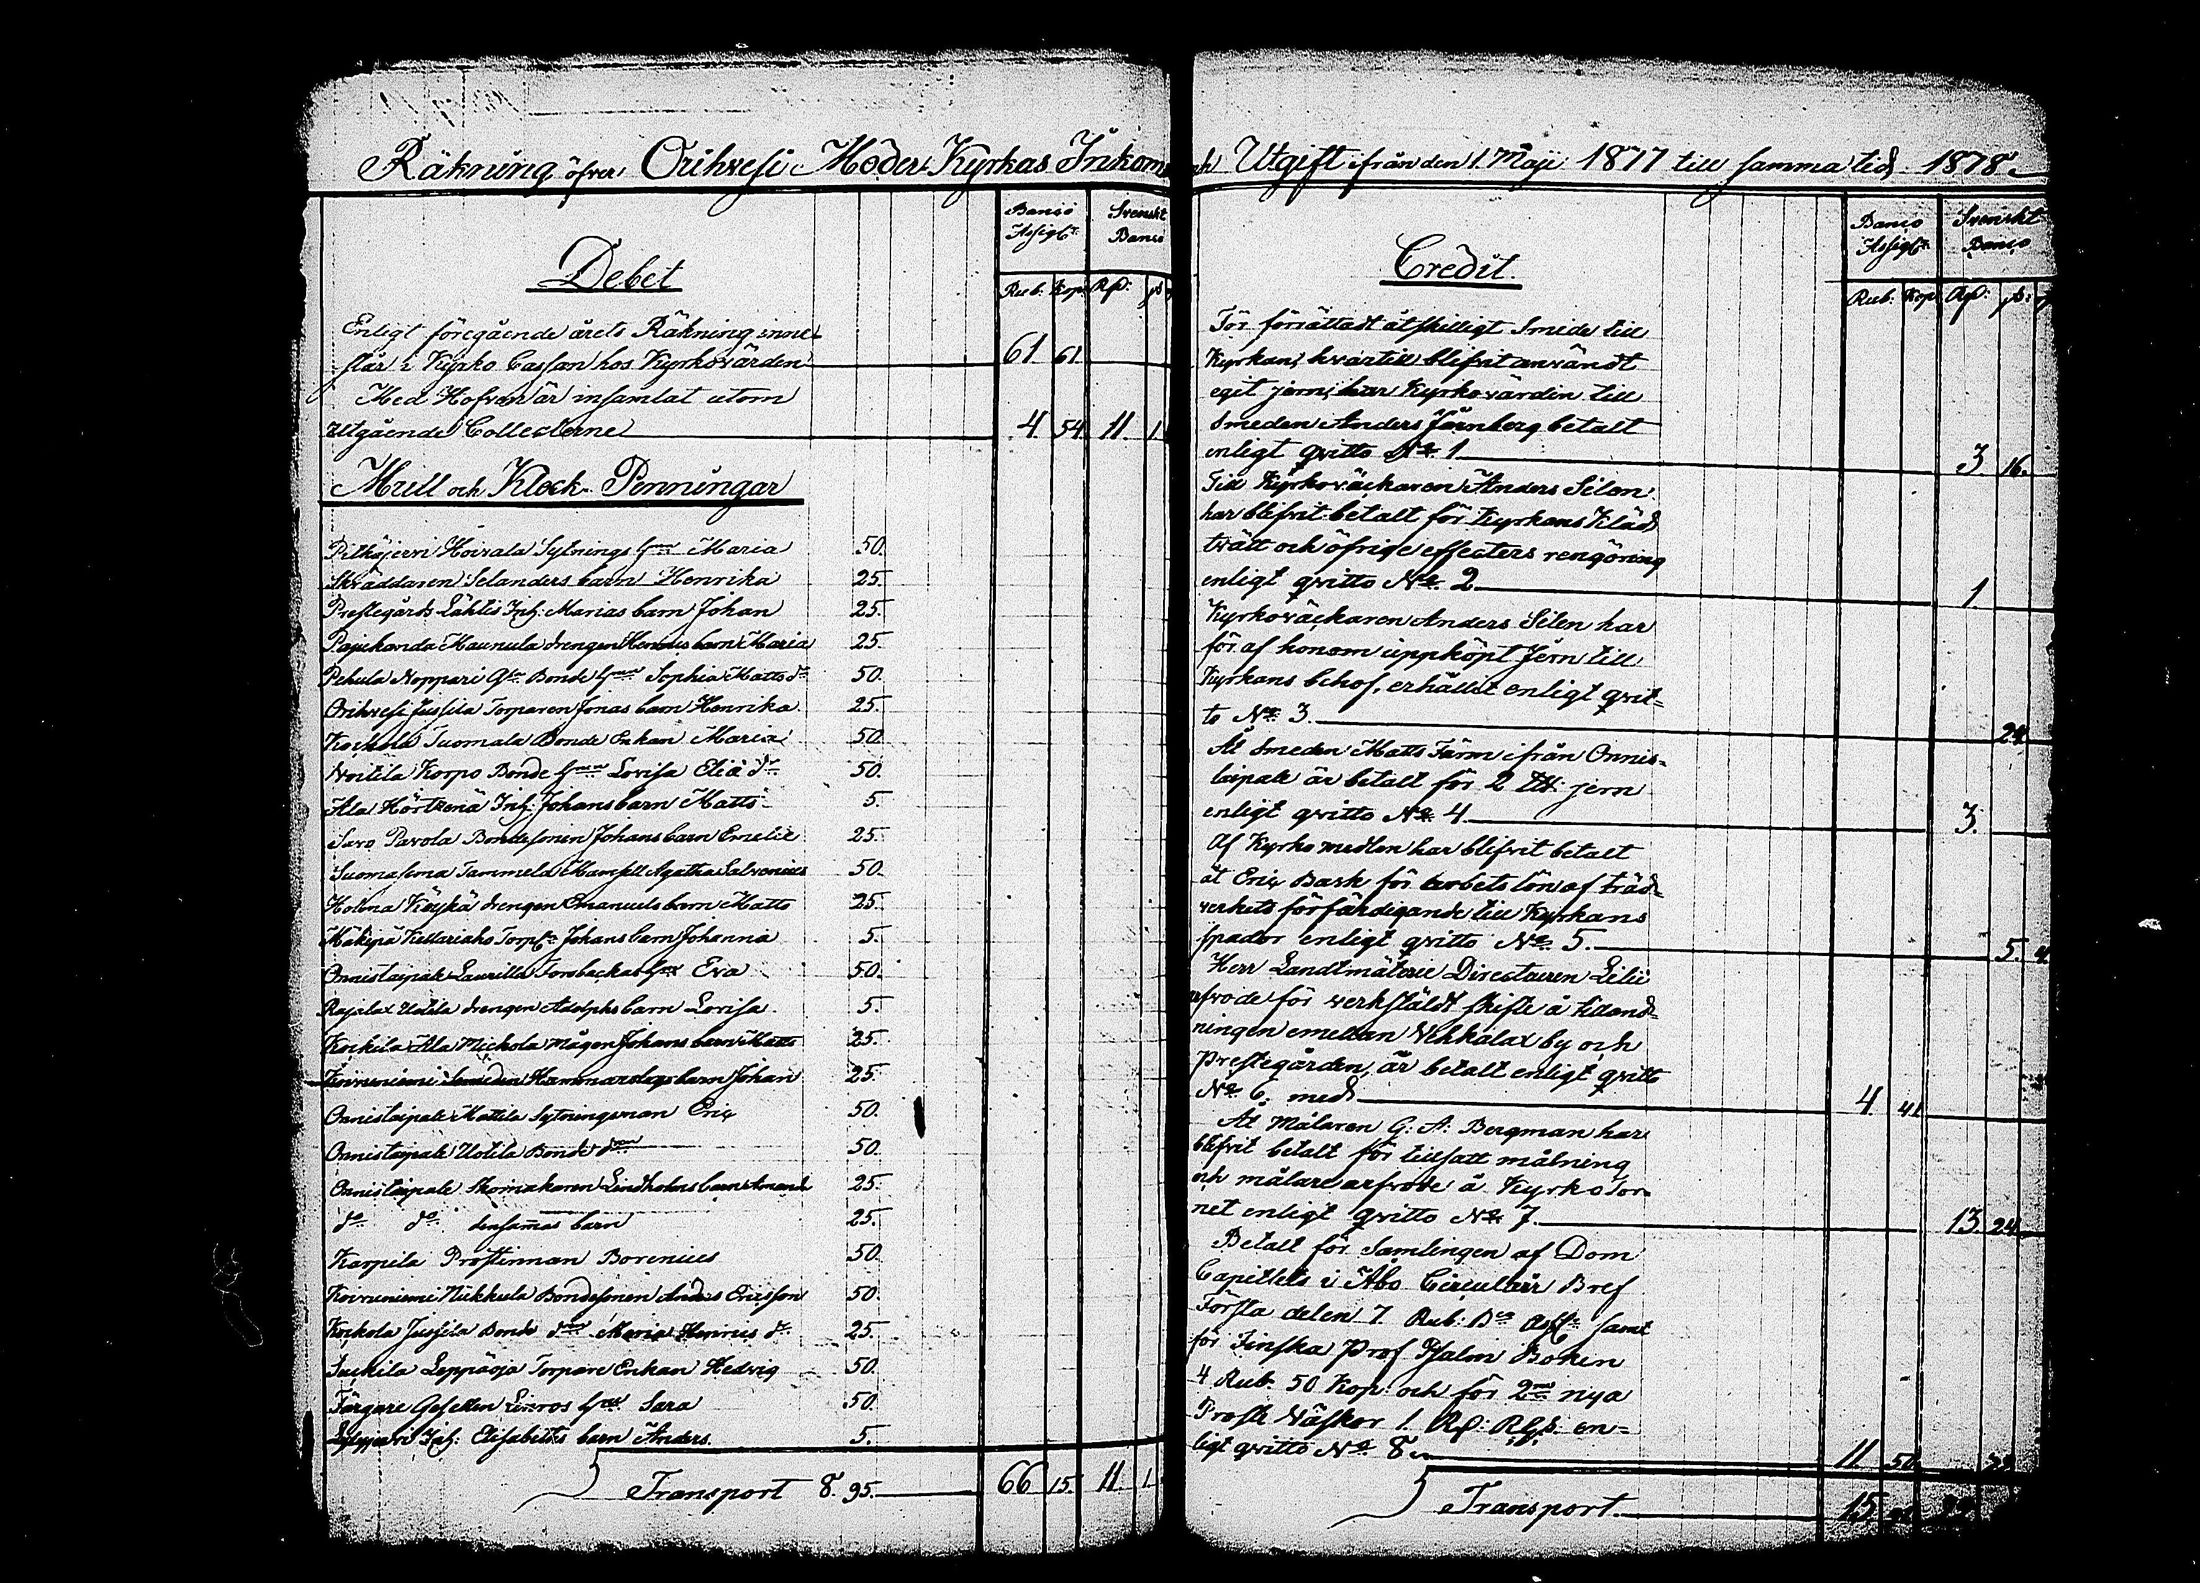 Räkning öfver Orihvesi Moder Kyrkas Inkomst och Utgift ifrån den 1. Maji 1877 till samma tid 1878
Debet
Banco Assigt. Svenskt Banco
Rub: Kop: Rp:
Enligt föregående årets Räkning inne-
står i Kyrko Cassan hos Kyrkovärden 61 61
Med Hofven är insamlat utom
utgående Collecterne 4 54 11 1
Mull och Klock Penningar
Pitkäjervi Hoivala Sytnings Maria 50.
Skräddaren Selanders barn Henrika 25.
Prestegårds Lähtis Inh: Marias barn Johan 25.
Pajukanda Maunula drengen Henrics barn Maria 25.
Pehula Noppari Bonde Sophia Matts dr 50.
Orihvesi Jussila Torparen Jonas barn Henrika 25.
Kockola Tuomala Bonde Enkan Maria 50.
Voitila Korpo Bonde Lovisa Elia dr 50.
Ala Hörtsenä Inh: Johans barn Matts 5.
Savo Pavola Bondesonen Johans barn Emelie 25.
Suomasema Tammela Mamsell Agatha Salvenius 50.
Holma Käyskä drengen Emanuels barn Matts 25.
Mäkipä Kellariaho Torp: Johans barn Johanna 5.
Onnistaipale Laurilla Forsbackas Eva 50.
Rajalax Uotila drengen Adolphs barn Lovisa 5.
Kockila Ala Mickola mågen Johans barn Matts 25.
Koivuniemi Smeden Hammarslags barn Johan 25.
Onnistaipale Mattila Sytningsman Eric 50.
Onnistaipale Uotila Bonde 50.
Onnistaipale Skomakaren Lindholms barn Amanda 25.
do do densammas barn 25.
Karpila Prostinnan Borenius 50.
Koivuniemi Nikkula Bondesonen Anders Ericsson 50.
Kockola Jussila Bonde Maria Henrics dr 25.
Suckila Leppäoja Torpare Enkan Hedvig 50.
Färgare Gesellen Linros Sara 50.
Inh: Elisabeths barn Anders 5.
Transport 8. 95. 66 15. 11. 1
Credit
Banco Assigt. Svenskt Banco
Rub: Kop: Rp:
För förrättadt åtskilligt Smide till
Kyrkan, hvartill blifvit användt
eget jern, har Kyrkovärden till
Smeden Anders Järnberg betalt
enligt qvitto No 1 3 16.
Till Kyrkoväckaren Anders Silen
har blifvit betalt för Kyrkans Kläd
tvätt och öfrige effecters rengöring
enligt qvitto No 2 1.
Kyrkoväckaren Anders Silen har
för af honom uppköpt Jern till
Kyrkans behof, erhållit enligt qvit=
to No 3. 24
Åt Smeden Matts Färm ifrån Onnis=
taipale är betalt för 2 jern
enligt qvitto No 4 3.
Af Kyrko medlen har blifvit betalt
åt Eric Bask för arbetslön af träd=
verkets förfärdigande till Kyrkans
spador enligt qvitto No 5. 5. 4.
Herr Landtmäterie Directeuren Lilii
arfvode för verkstäldt skifte å tilland=
ningen emellan Vehkalax by och
Prestegården, är betalt enligt qvitto
No 6. med 4 41
Åt Målaren G: A: Bergman har
blifvit betalt för tillsatt målning
och målarearfvode å Kyrko Tor=
net enligt qvitto No 7. 13. 24
Betalt för Samlingen af Dom
Capitlets i Åbo Circulär Bref
Första delen 7 Rub: Bco samt
för Finska Prof Psalm Boken
4 Rub. 50 Kop: och för 2ne nya
Proste Väskor 1. Rp: Rgs. en=
ligt qvitto No 8. 11 50.
Transport 15